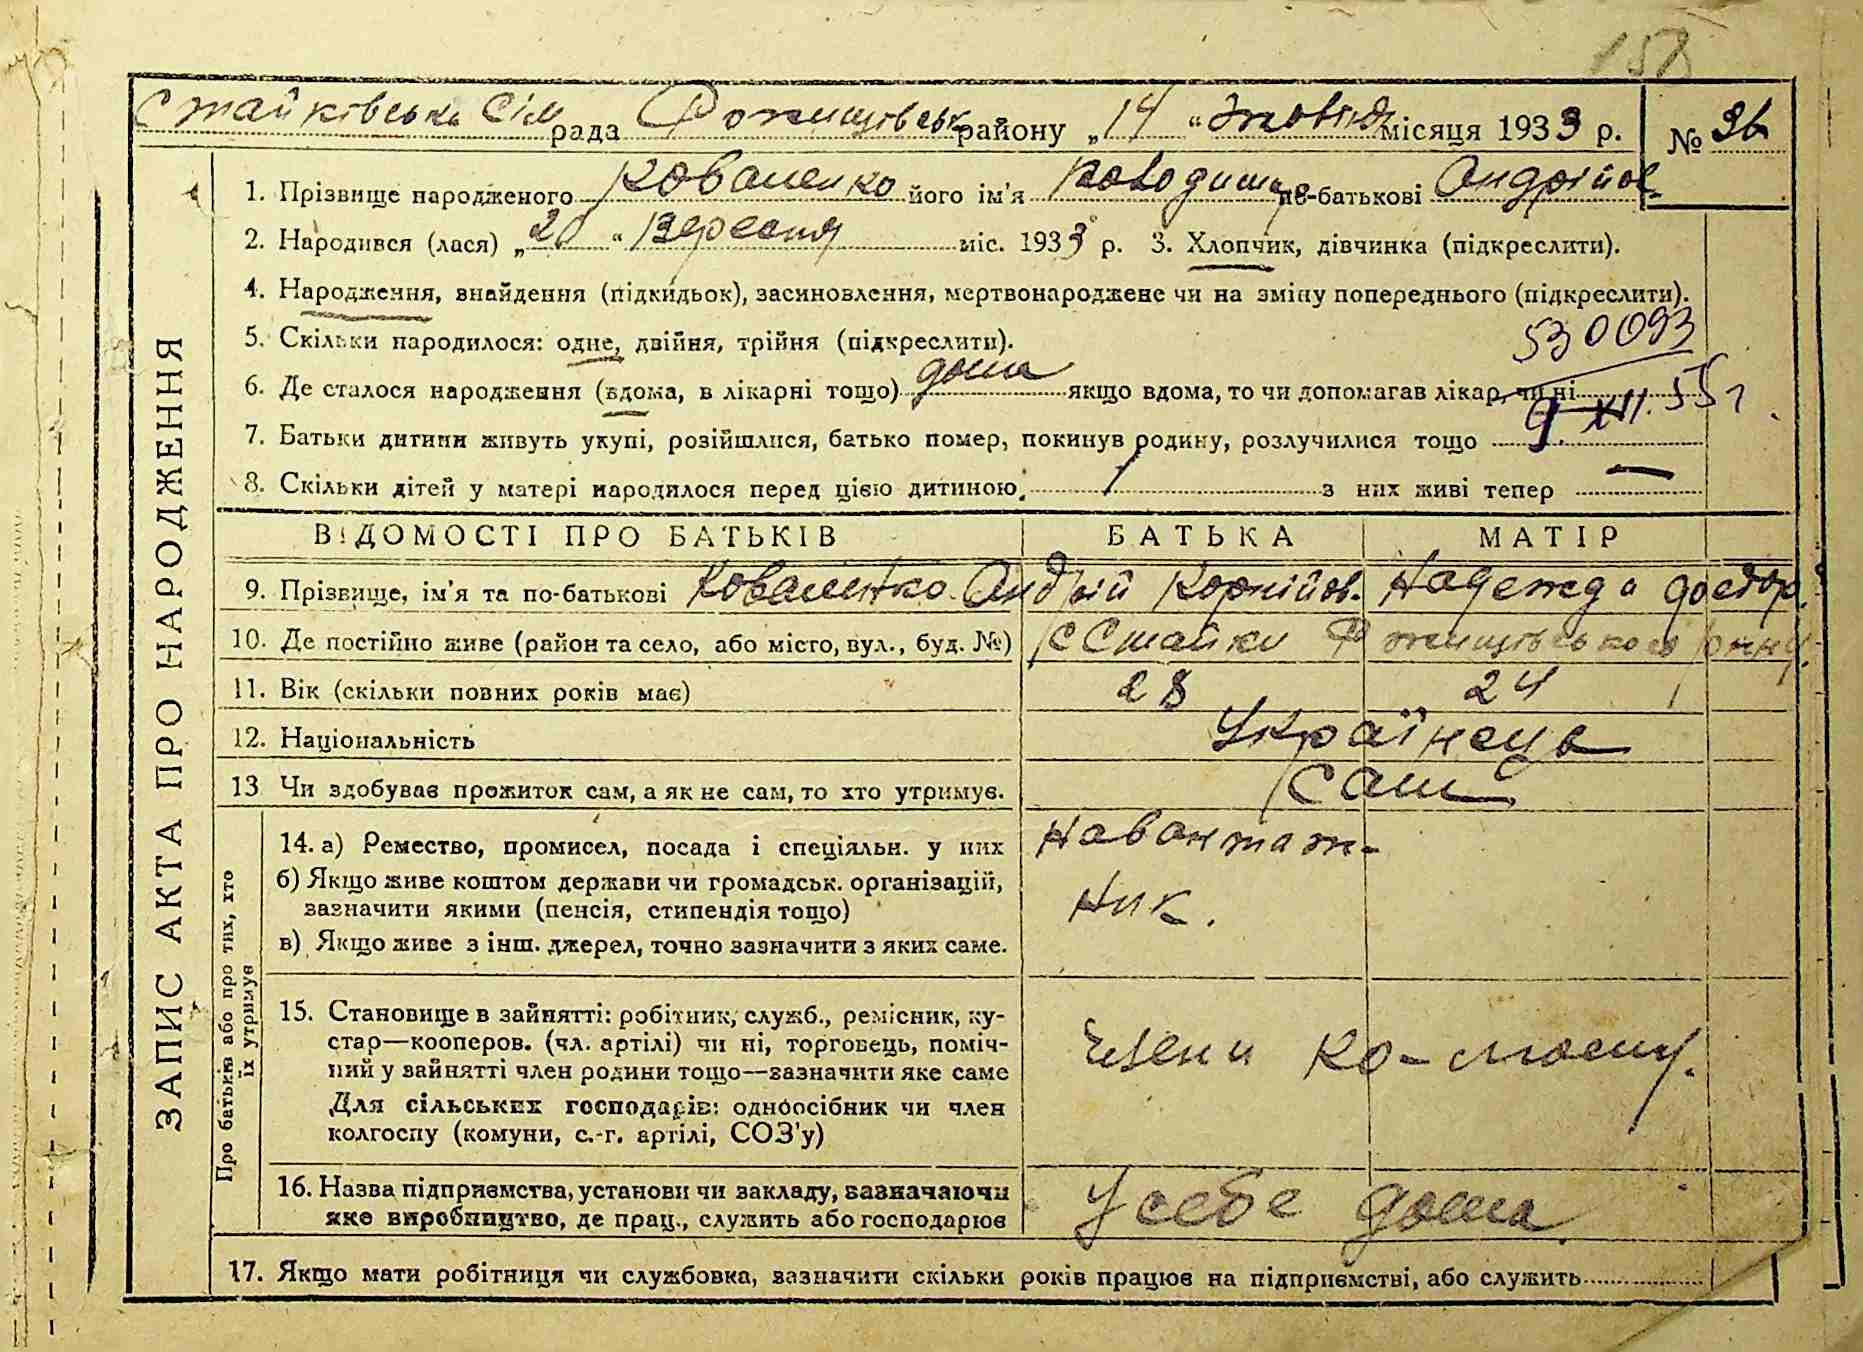 158
Стайківська Сіл рада Ржищівськ району „14“ Жовтня місяця 1933 р. № 36
1. Прізвище народженого Коваленко його ім'я по-батькові Андрійов.
2. Народився (лася) „20“ Вересня міс. 1933 р. 3. Хлопчик, дівчинка (підкреслити).
4. Народження, знайдення (підкидьок), засиновлення, мертвонароджене чи на зміну попереднього (підкреслити).
5. Скільки народилося: одне, двійня, трійня (підкреслити).
530093
6. Де сталося народження (вдома, в лікарні тощо) дома якщо вдома, то чи допомагав лікар, чи ні
9. XII. 55 г.
7. Батьки дитини живуть укупі, розійшлися, батько помер, покинув родину, розлучилися тощо
8. Скільки дітей у матері народилося перед цією дитиною. 1 з них живі тепер —
ВІДОМОСТІ ПРО БАТЬКІВ БАТЬКА МАТІР
9. Прізвище, ім'я та по-батькові Коваленко Андрій Корнійов. Надежда
10. Де постійно живе (район та село, або місто, вул., буд. №) с Стайки Ржищівського р-ну.
11. Вік (скільки повних років має) 28 24
12. Національність Українець
13 Чи здобував прожиток сам, а як не сам, то хто утримує. Сам
14. а) Ремество, промисел, посада і спеціяльн. у них Навантаж-
б) Якщо живе коштом держави чи громадськ. організацій,
зазначити якими (пенсія, стипендія тощо) ник.
в) Якщо живе з інш. джерел, точно зазначити з яких саме.
15. Становище в зайнятті: робітник, служб., ремісник, ку-
стар—кооперов. (чл. артілі) чи ні, торговець, поміч- Члени
ний у зайнятті член родини тощо—зазначити яке саме
Для сільських господарів: одноосібник чи член
колгоспу (комуни, с.-г. артілі, СОЗ'у)
16. Назва підприємства, установи чи закладу, зазначаючи
яке виробництво, де прац., служить або господарює У себе дома.
17. Якщо мати робітниця чи службовка, зазначити скільки років працює на підприємстві, або служить
ЗАПИС АКТА ПРО НАРОДЖЕННЯ
Про батьків або про тих, хто
їх утримує